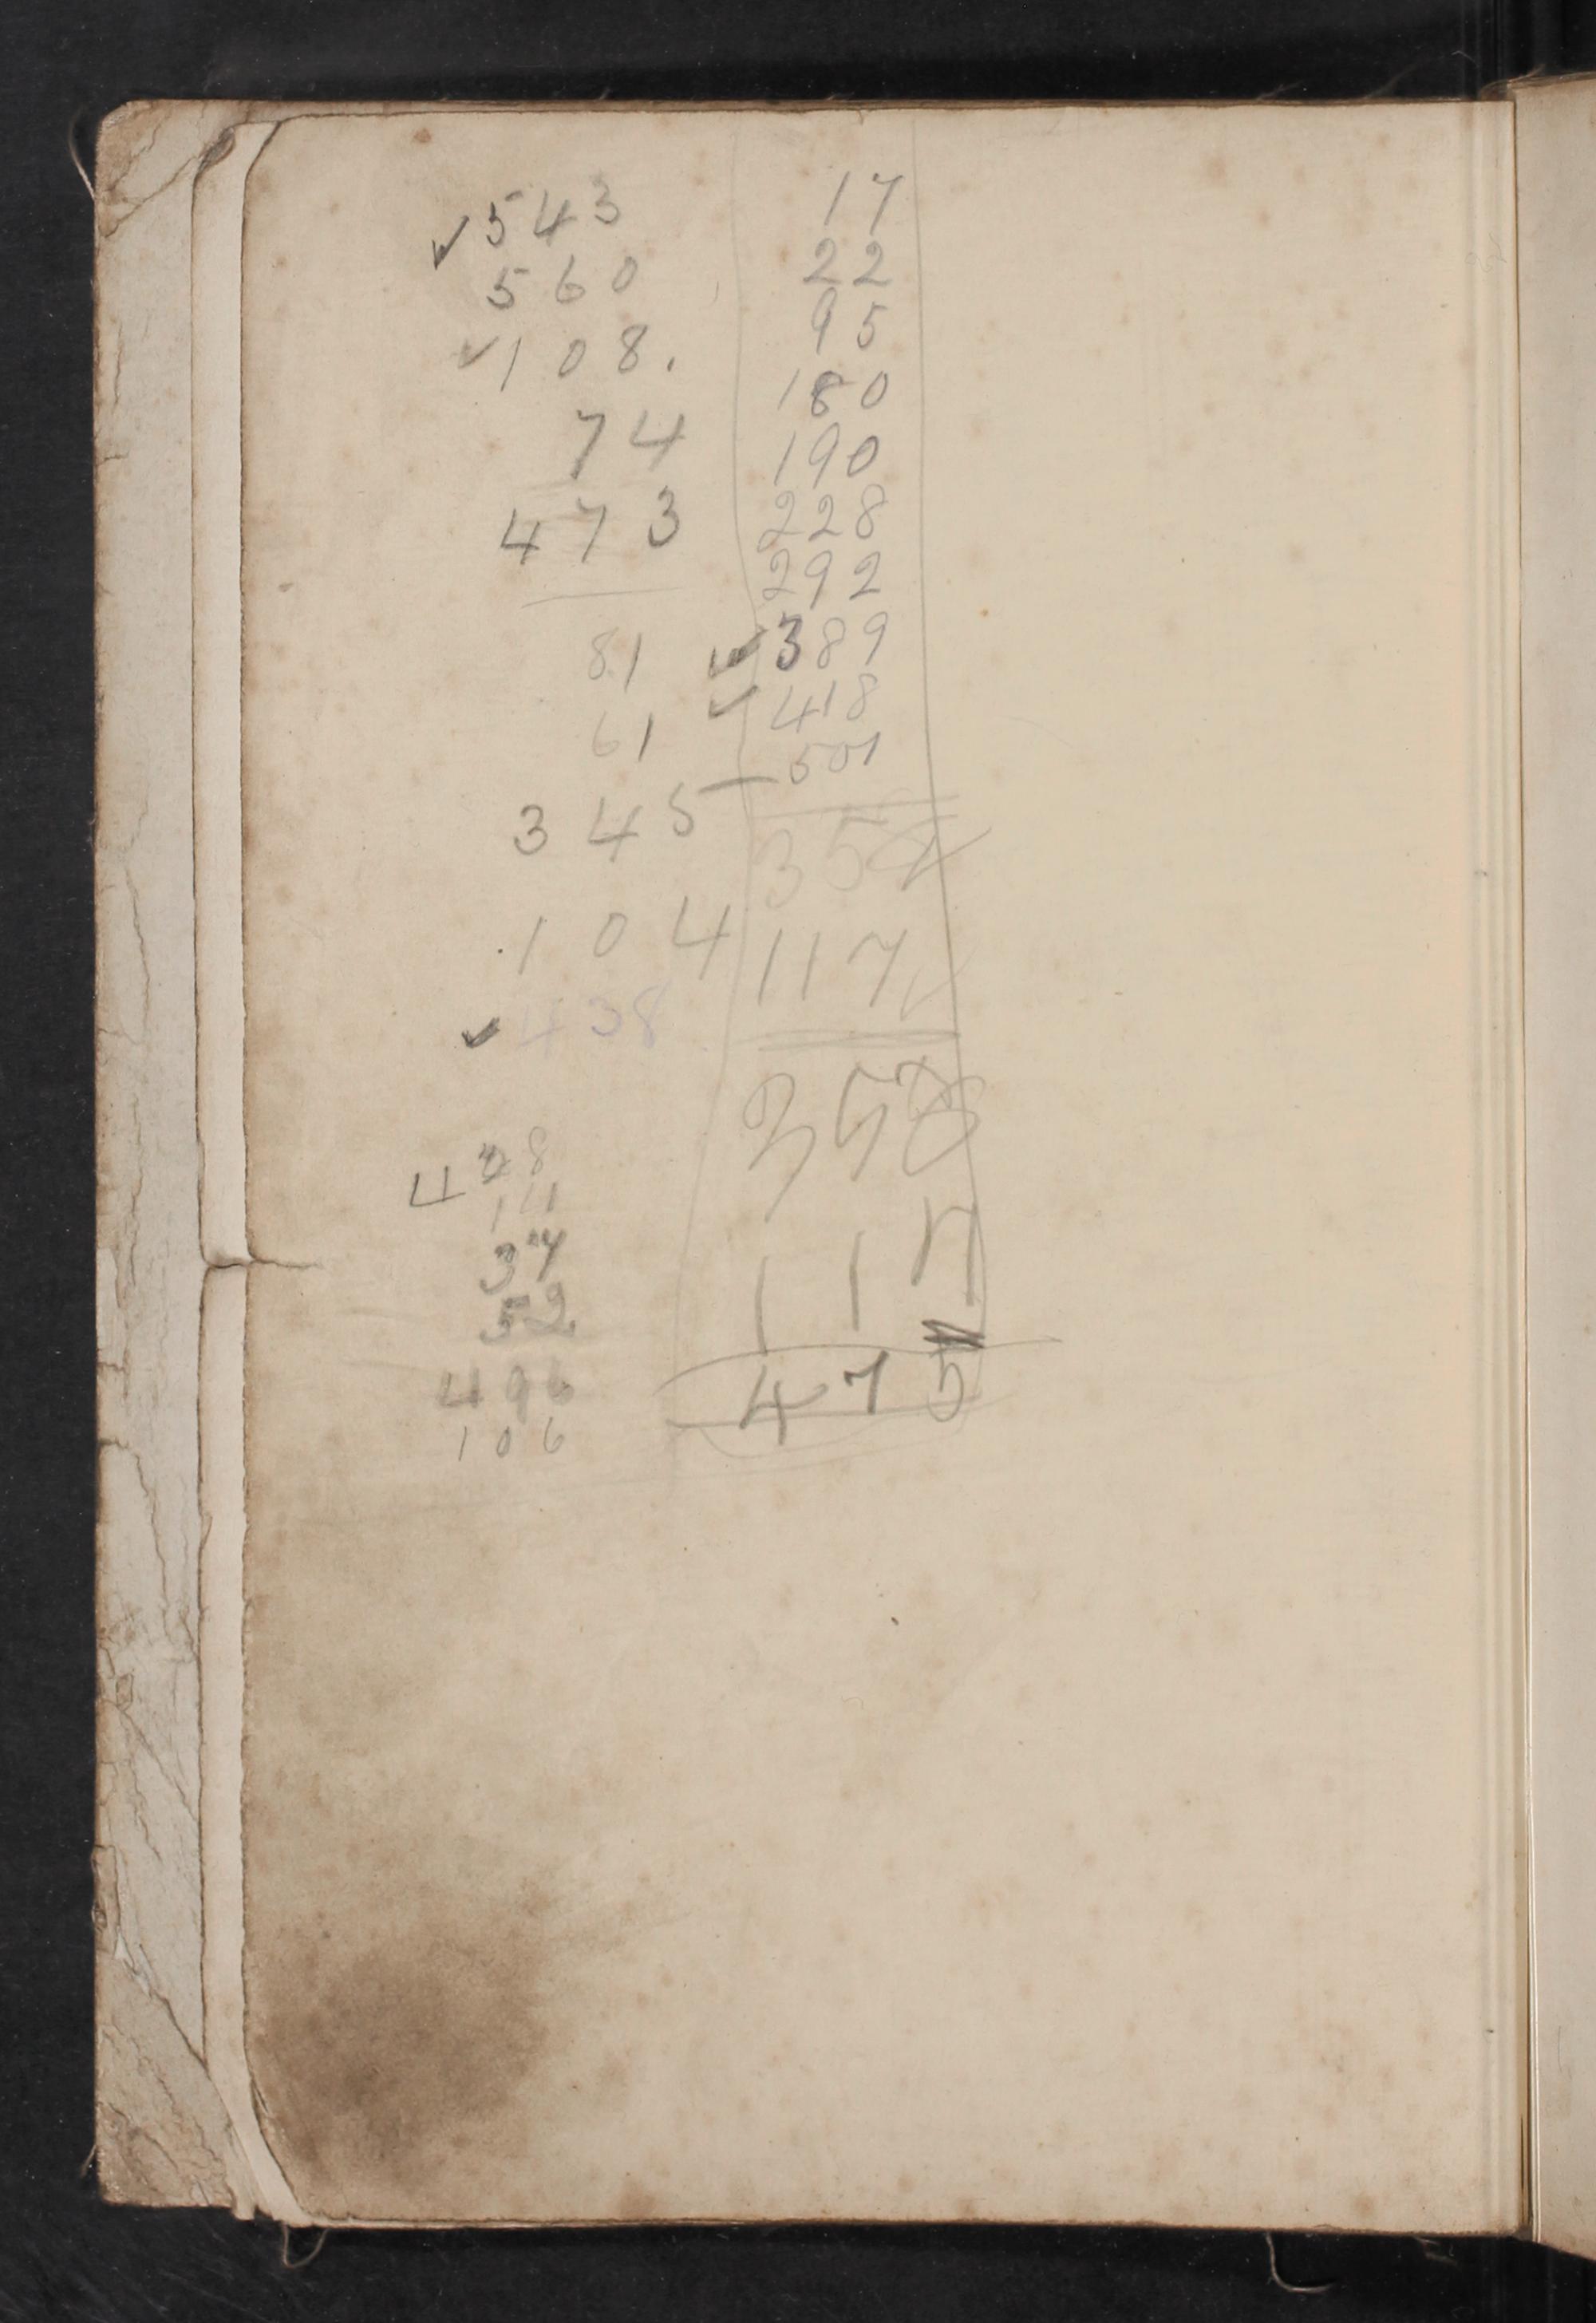 ✓ 543
560
✓ 108.
74
473
81
61
345
104
✓ 438
428
111
52
496
106
17
22
95
180
190
228
292
✓ 389
✓ 418
501
117
358
117
475